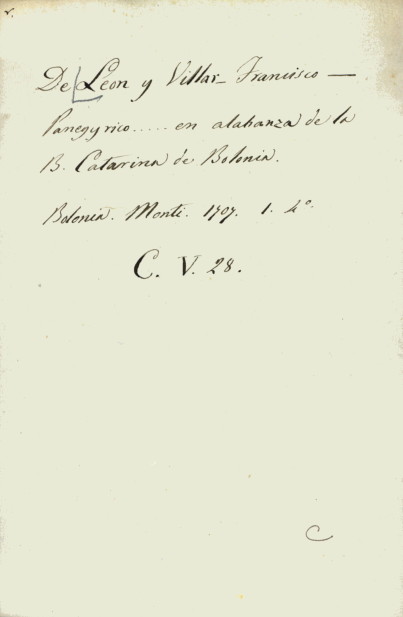 De Leon y Villar_ Francisco —
Panegyrico..... en alabanza de la
B. Catarina de Bolonia.
Bolonia. Monti. 1707. 1. 4º.
C. V. 28.
C